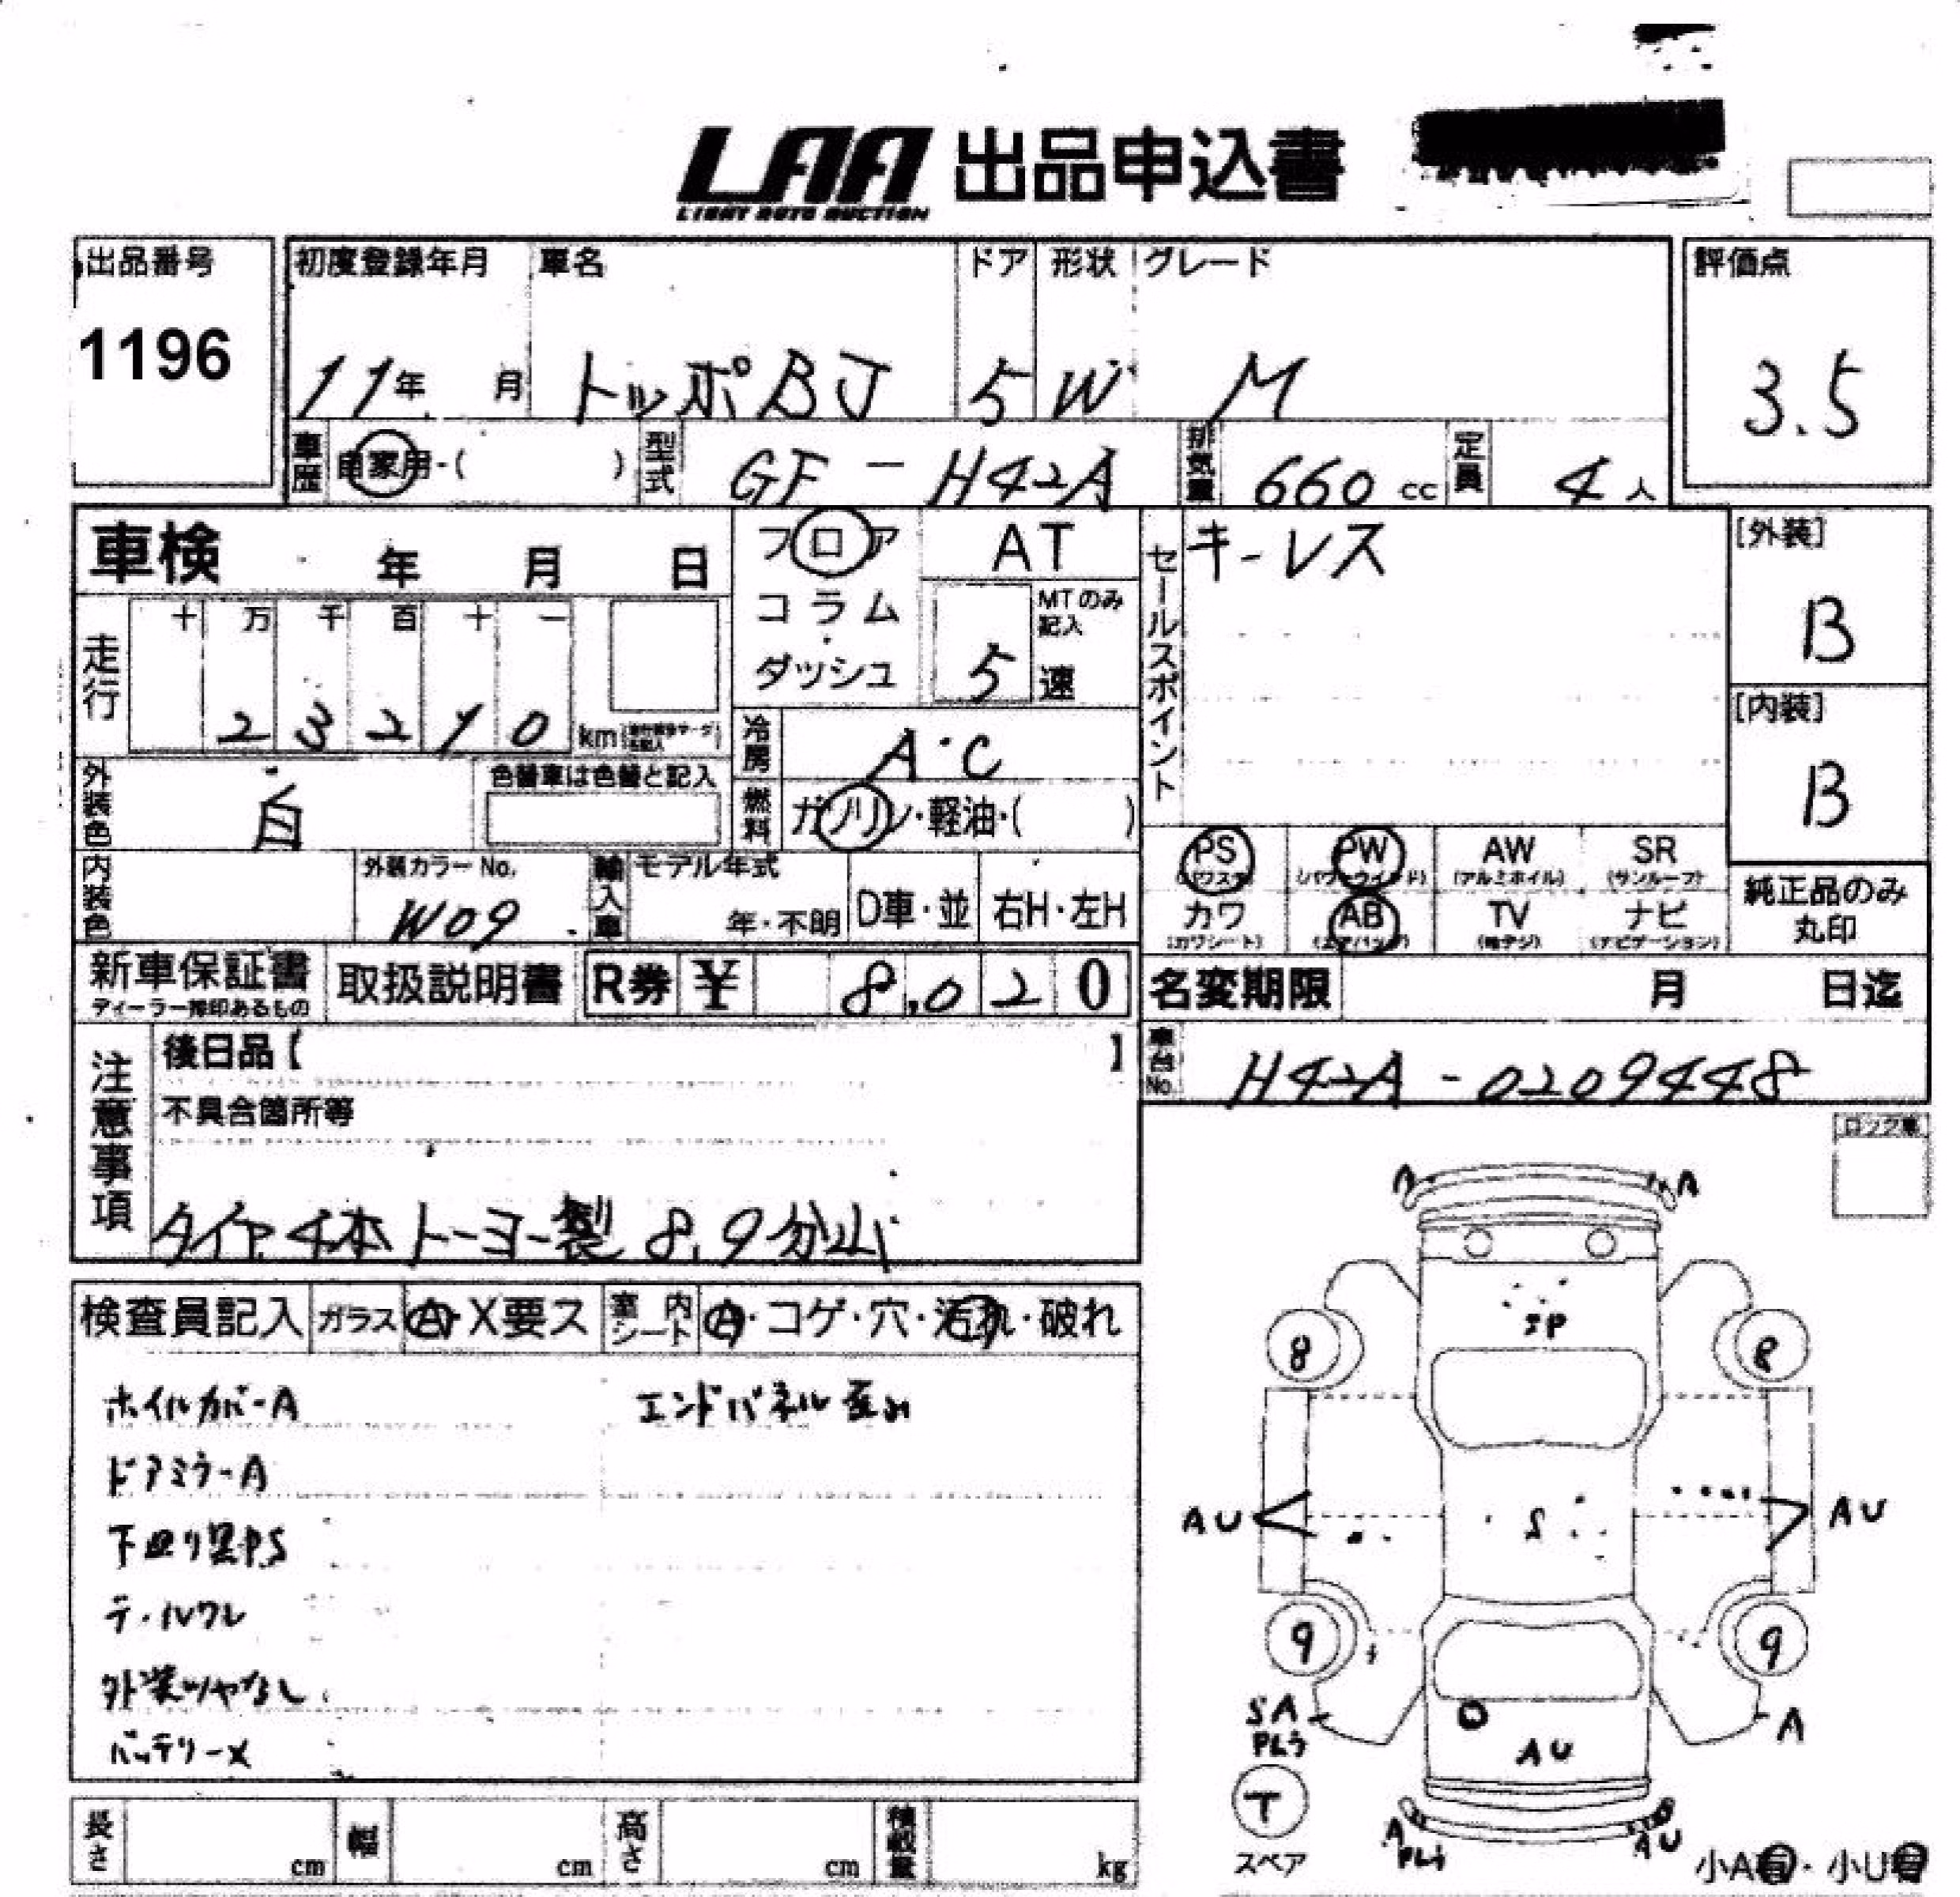 LAA 出品申込書
LIGHT AUTO AUCTION
出品番号
1196
初度登録年月 車名 ドア 形状 グレード
11年 月 トッポBJ 5 W M
評価点
3.5
車歴 自家用・( ) 型式 GF-H42A 排気量 660 cc 定員 4人
車検 年 月 日
フロア AT
コラム
ダッシュ
MTのみ記入
5 速
走行
十 万 千 百 十 一
2 3 2 1 0 km
冷房 A・C
燃料 ガソリン・軽油・( )
セールスポイント
キーレス
[外装]
B
[内装]
B
外装色 白
色替車は色替と記入
内装色
外装カラーNo.
W09
輸入車 モデル年式
年・不明 D車・並 右H・左H
PS PW AW SR
(パワステ) (パワーウインド) (アルミホイル) (サンルーフ)
カワ AB TV ナビ
(カワシート) (エアバッグ) (地デジ) (ナビゲーション)
純正品のみ
丸印
新車保証書
ディーラー捺印あるもの
取扱説明書 R券 ¥ 8,020
名変期限 月 日迄
車台No. H42A-0209448
注意事項
後日品【 】
不具合箇所等
タイヤ4本トーヨー製 8.9分山
ロック車
検査員記入 ガラス A・X要ス 室内シート A・コゲ・穴・汚れ・破れ
ホイルカバーA エンドパネル歪み
ドアミラーA
下回り黒P.S
テールワレ
外装ツヤなし
バッテリーX
A A
EP
8 8
AU S AU
9 9
SA
PLう
A
AU
T
スペア
A
PLう
AU
小A有・小U有
長さ cm 幅 cm 高さ cm 積載量 kg